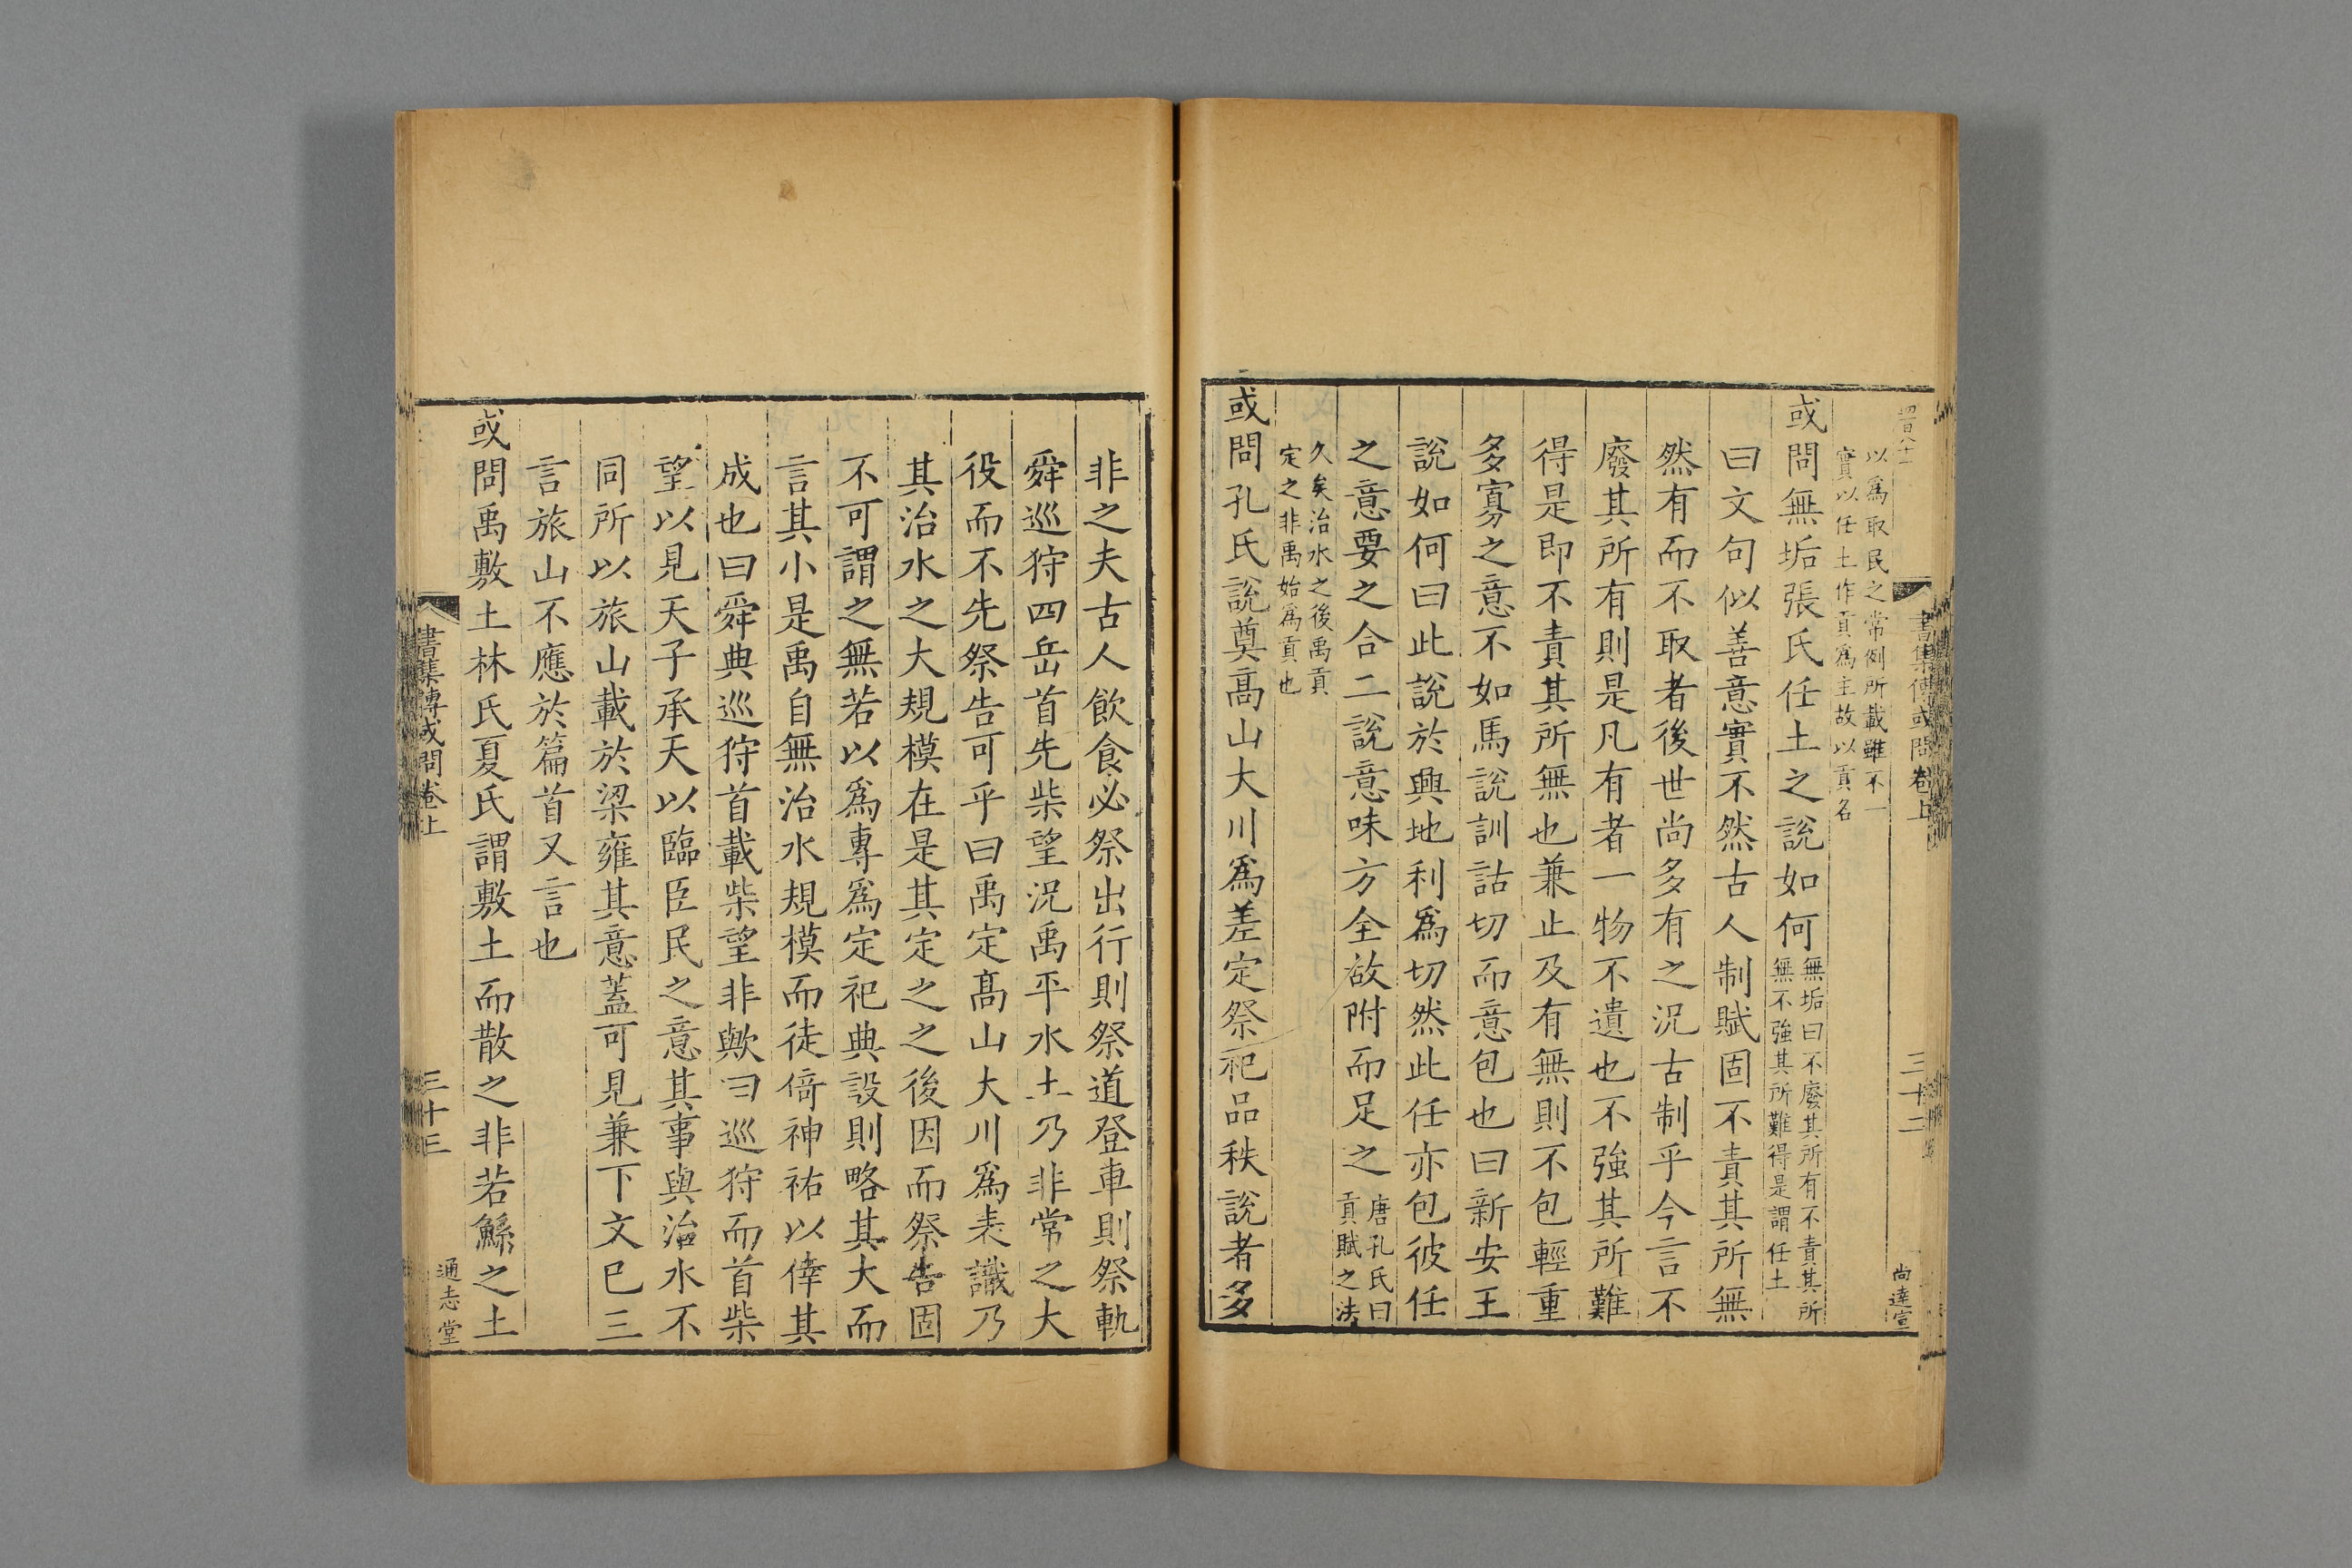 書集傳或問卷上
三十二
尚達宣
以爲取民之常例所載雖不一
實以任土作貢爲主故以貢名
或問無垢張氏任土之說如何無垢曰不廢其所有不責其所
無不強其所難得是謂任土
曰文句似善意實不然古人制賦固不責其所無
然有而不取者後世尚多有之況古制乎今言不
廢其所有則是凡有者一物不遺也不強其所難
得是即不責其所無也兼止及有無則不包輕重
多寡之意不如馬說訓詁切而意包也曰新安王
說如何曰此說於興地利爲切然此任亦包彼任
之意要之合二說意味方全故附而足之唐孔氏曰
貢賦之法
久矣治水之後禹貢
定之非禹始爲貢也
或問孔氏說奠高山大川爲差定祭祀品秩說者多
非之夫古人飲食必祭出行則祭道登車則祭軌
舜巡狩四岳首先柴望況禹平水土乃非常之大
役而不先祭告可乎曰禹定高山大川爲表識乃
其治水之大規模在是其定之之後因而祭告固
不可謂之無若以爲專爲定祀典設則略其大而
言其小是禹自無治水規模而徒倚神祐以倖其
成也曰舜典巡狩首載柴望非歟曰巡狩而首柴
望以見天子承天以臨臣民之意其事與治水不
同所以旅山載於梁雍其意蓋可見兼下文已三
言旅山不應於篇首又言也
或問禹敷土林氏夏氏謂敷土而散之非若鯀之土
書集傳或問卷上
三十三
通志堂